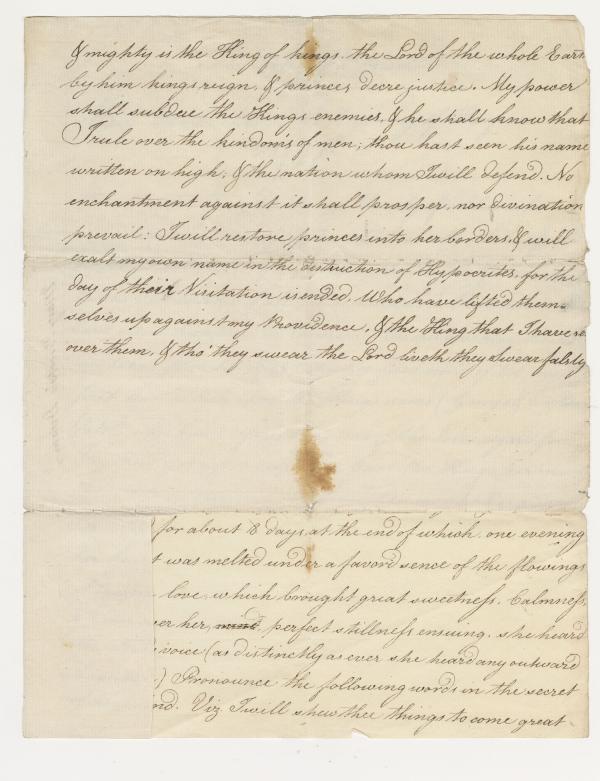 & mighty is the King of kings, the Lord of the whole Eart
by him kings reign, & princes decre justice. My power
shall subdue the Kings enemies, & he shall know that
I rule over the kindoms of men; thou hast seen his name
written on high; & the nation whom I will defend. No
enchantment against it shall prosper, nor divination
prevail: I will restore princes into her borders, & will
exalt my own name in the distruction of Hypocrites, for the
day of their Visitation is ended. Who have lifted them-
selves up against my Providence, & the King that I have
over them, & tho' they swear the Lord liveth they Swear falsly
for about 8 days, at the end of which, one evening
was melted under a favord sence of the flowings
love, which brought great sweetness, Calmness,
her, mind, perfect stillness ensuing, she heard
voice (as distinctly as ever she heard any outward
) Pronounce the following words in the secret
nd. Viz. I will shew thee things to come great